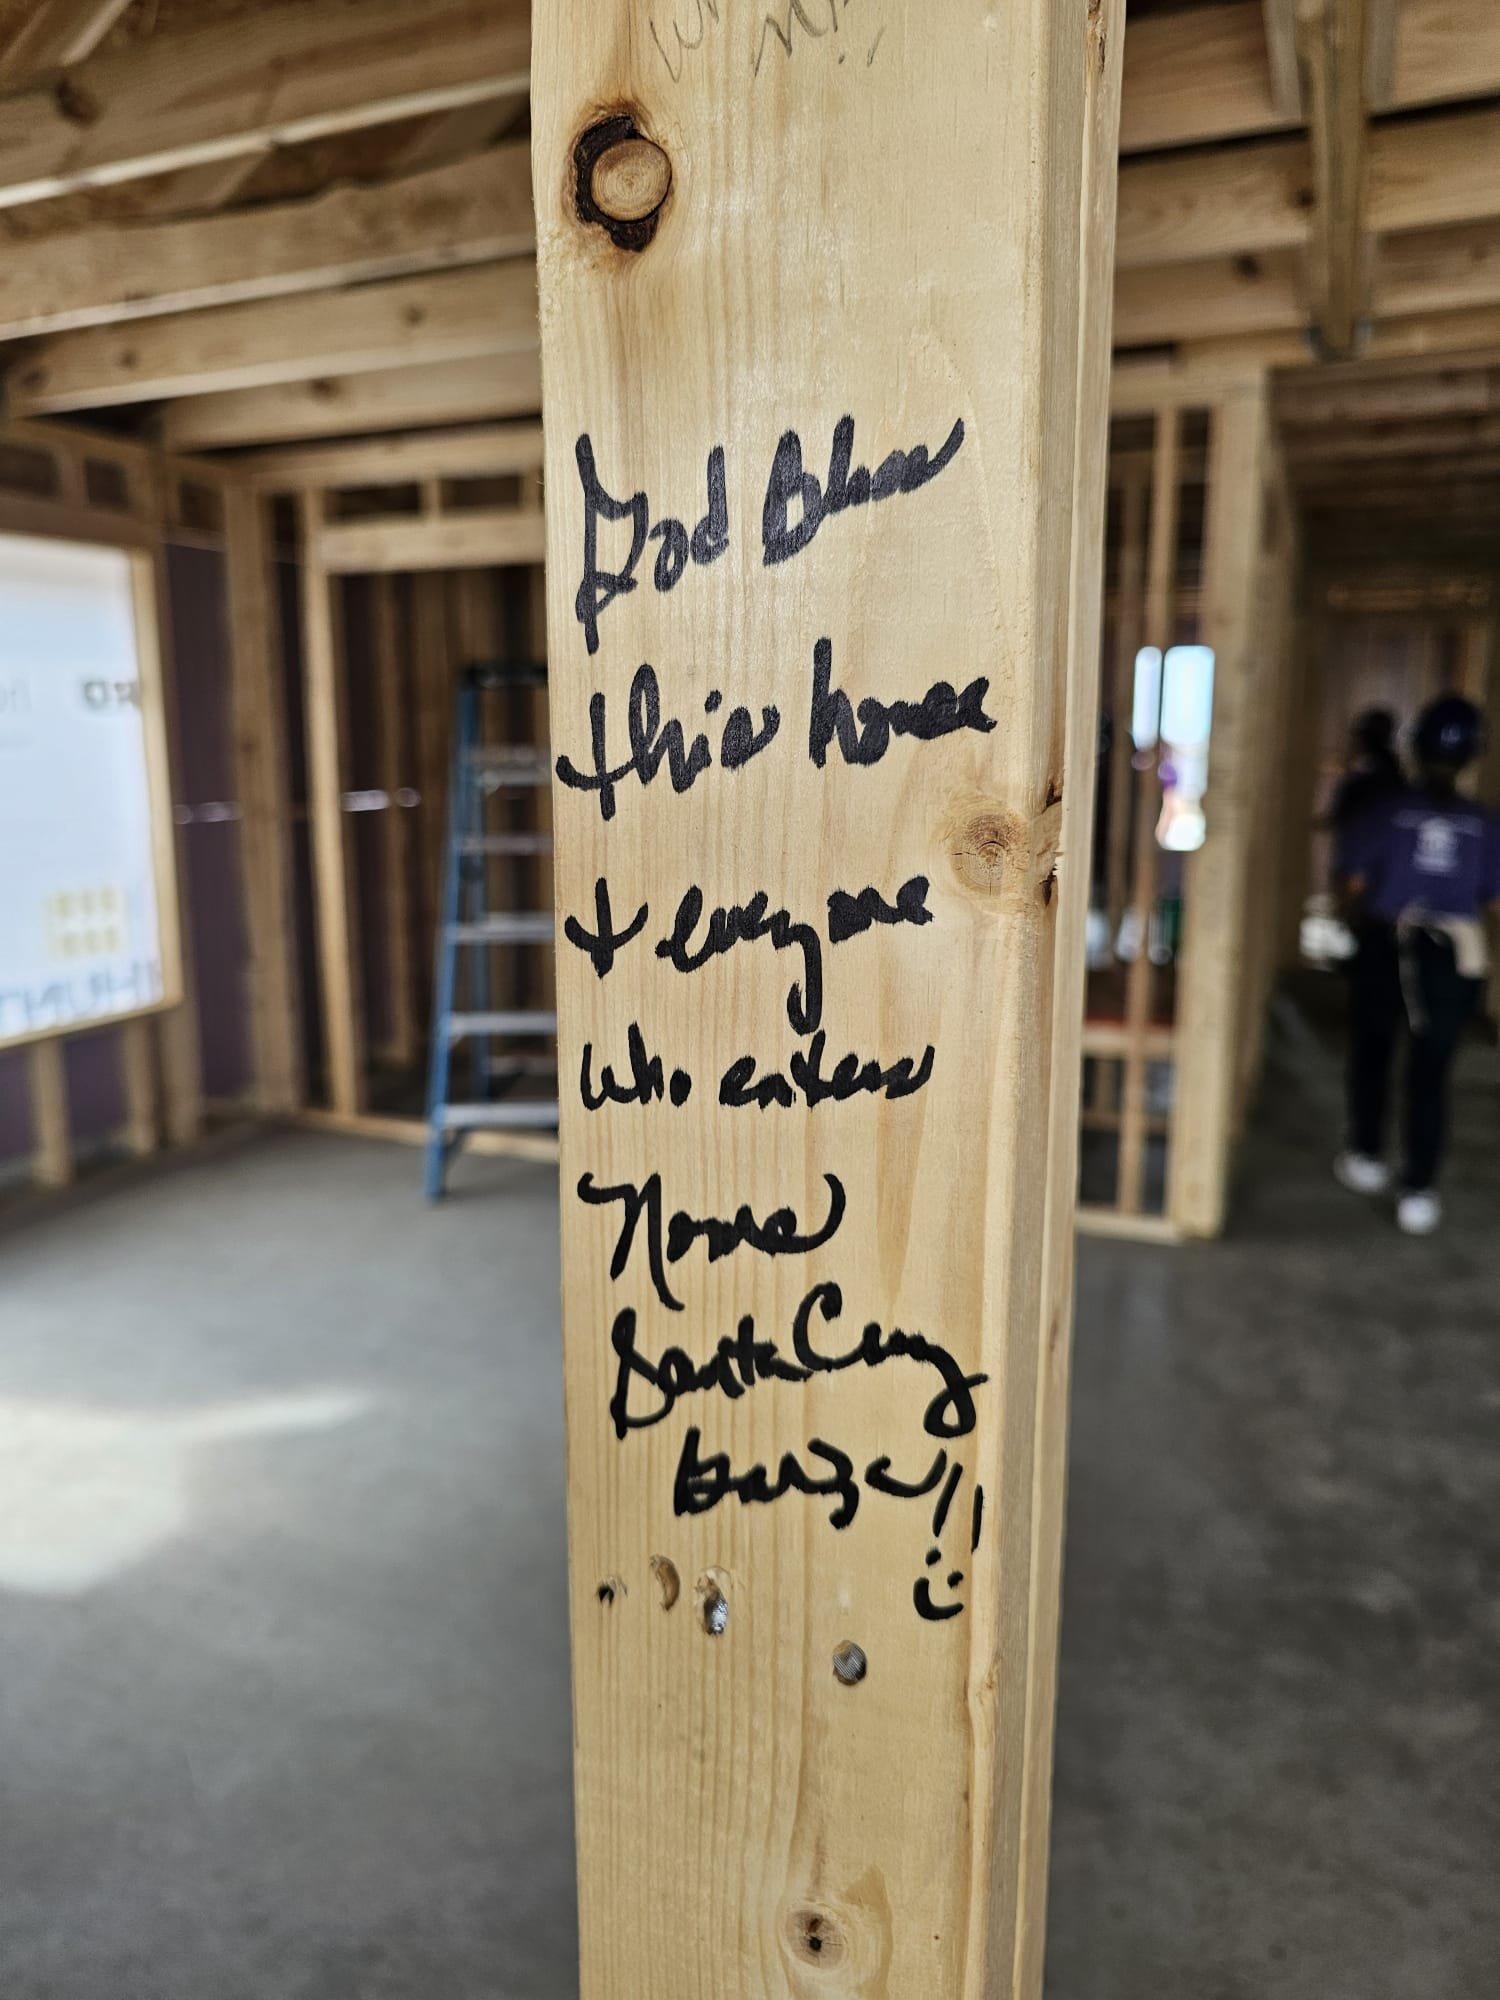 God Bless
this house
+ everyone
who enters
Norma
Santa Cruz
Garza!!